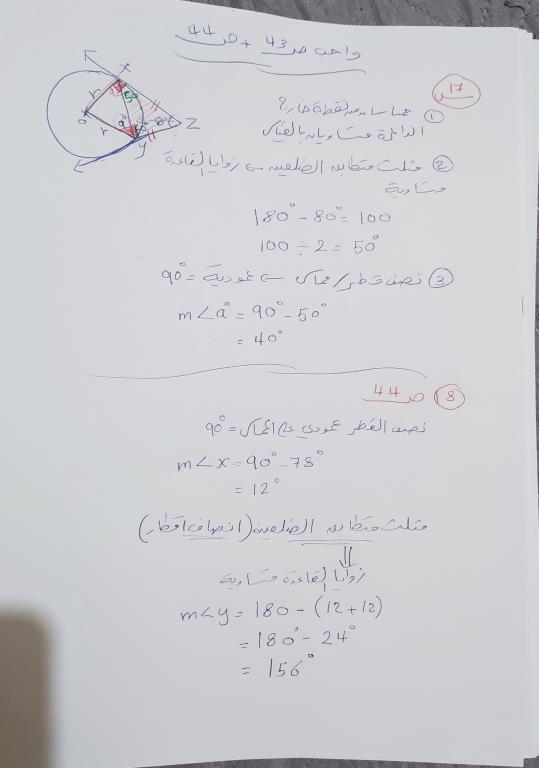 واجب ص 43 + ص 44
17 س
① مماسان من نقطة خارج
الدائرة متساويان بالقياس
② مثلث متطابق الضلعين ← زوايا القاعدة
متساوية
180° - 80° = 100
100 ÷ 2 = 50°
③ نصف قطر/مماس ← عمودية = 90°
m∠a° = 90° - 50°
= 40°
8 ص 44
نصف القطر عمودي على المماس = 90°
m∠x = 90° - 78°
= 12°
مثلث متطابق الضلعين (انصاف اقطار)
⇓
زوايا القاعدة متساوية
m∠y = 180 - (12+12)
= 180° - 24°
= 156°
x
r
50
o
a
80
z
r
y